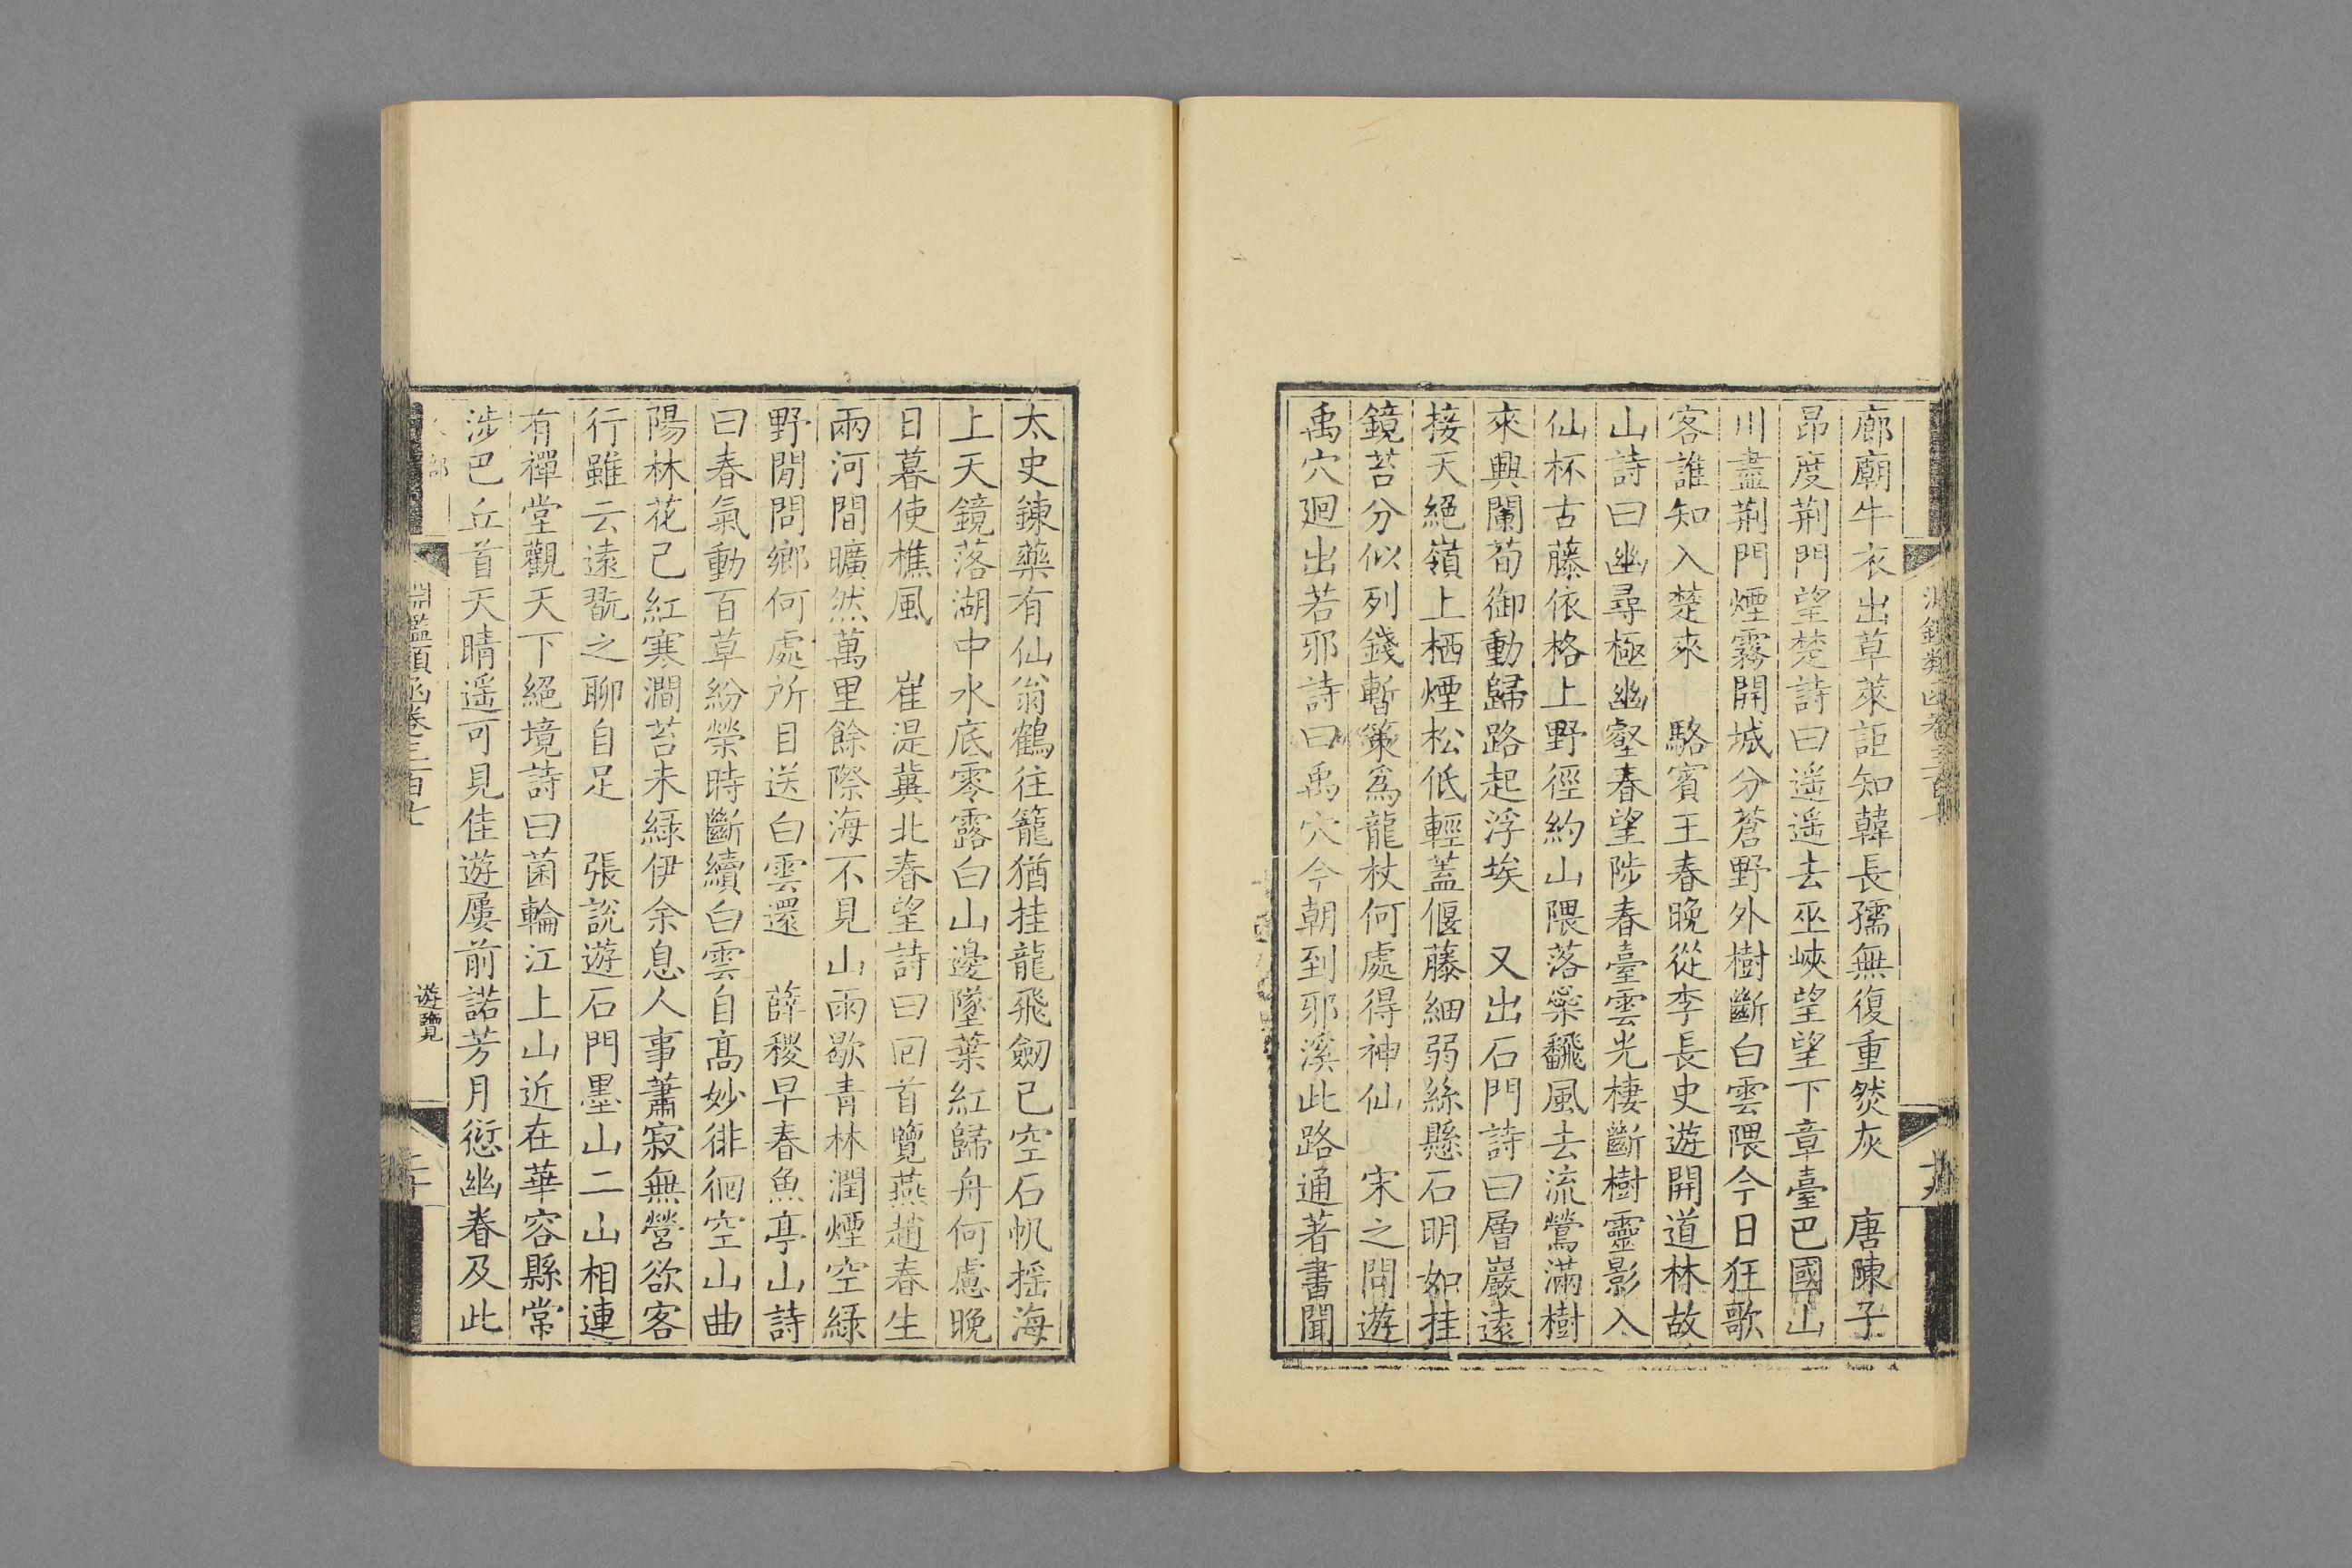 廊廟牛衣出草萊詎知韓長孺無復重燃灰　唐陳子
昂度荆門望楚詩曰遥遥去巫峽望望下章臺巴國山
川盡荆門煙霧開城分蒼野外樹斷白雲隈今日狂歌
客誰知入楚來　駱賓王春晚從李長史遊開道林故
山詩曰幽尋極幽壑春望陟春臺雲光棲斷樹靈影入
仙杯古藤依格上野徑約山隈落蘂飜風去流鶯滿樹
來興闌荀御動歸路起浮埃　又出石門詩曰層巖遠
接天絕嶺上栖煙松低輕蓋偃藤細弱絲懸石明如挂
鏡苔分似列錢暫策爲龍杖何處得神仙　宋之問遊
禹穴廻出若邪詩曰禹穴今朝到邪溪此路通著書聞
太史鍊藥有仙翁鶴往籠猶挂龍飛劒已空石帆摇海
上天鏡落湖中水底零露白山邊墜葉紅歸舟何慮晚
日暮使樵風　崔湜冀北春望詩曰回首覽燕趙春生
兩河間曠然萬里餘際海不見山雨歇青林潤煙空綠
野閒問鄉何處所目送白雲還　薛稷早春魚亭山詩
曰春氣動百草紛榮時斷續白雲自高妙徘徊空山曲
陽林花已紅寒澗苔未綠伊余息人事蕭寂無營欲客
行雖云遠翫之聊自足　張說遊石門墨山二山相連
有禪堂觀天下絕境詩曰菌輪江上山近在華容縣常
涉巴丘首天晴遥可見佳遊屢前諾芳月愆幽眷及此
淵鑑類函卷三百七
遊覽
二十